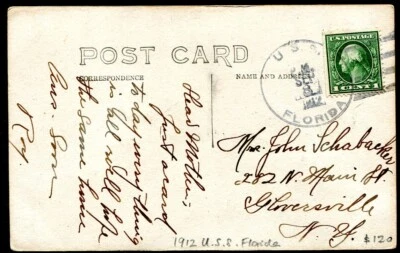 POST CARD
CORRESPONDENCE
NAME AND ADDRESS
Dear Mother:
Just a card
to day every thing
is well Will hope
the same home
Ans. Soon
Roy.
U.S.S.
SEP
1912
FLORIDA
1 CENT 1
Mrs. John Schabacker
282 N. Main St.
Gloversville
N.Y.
1912 U.S.S. Florida
$120